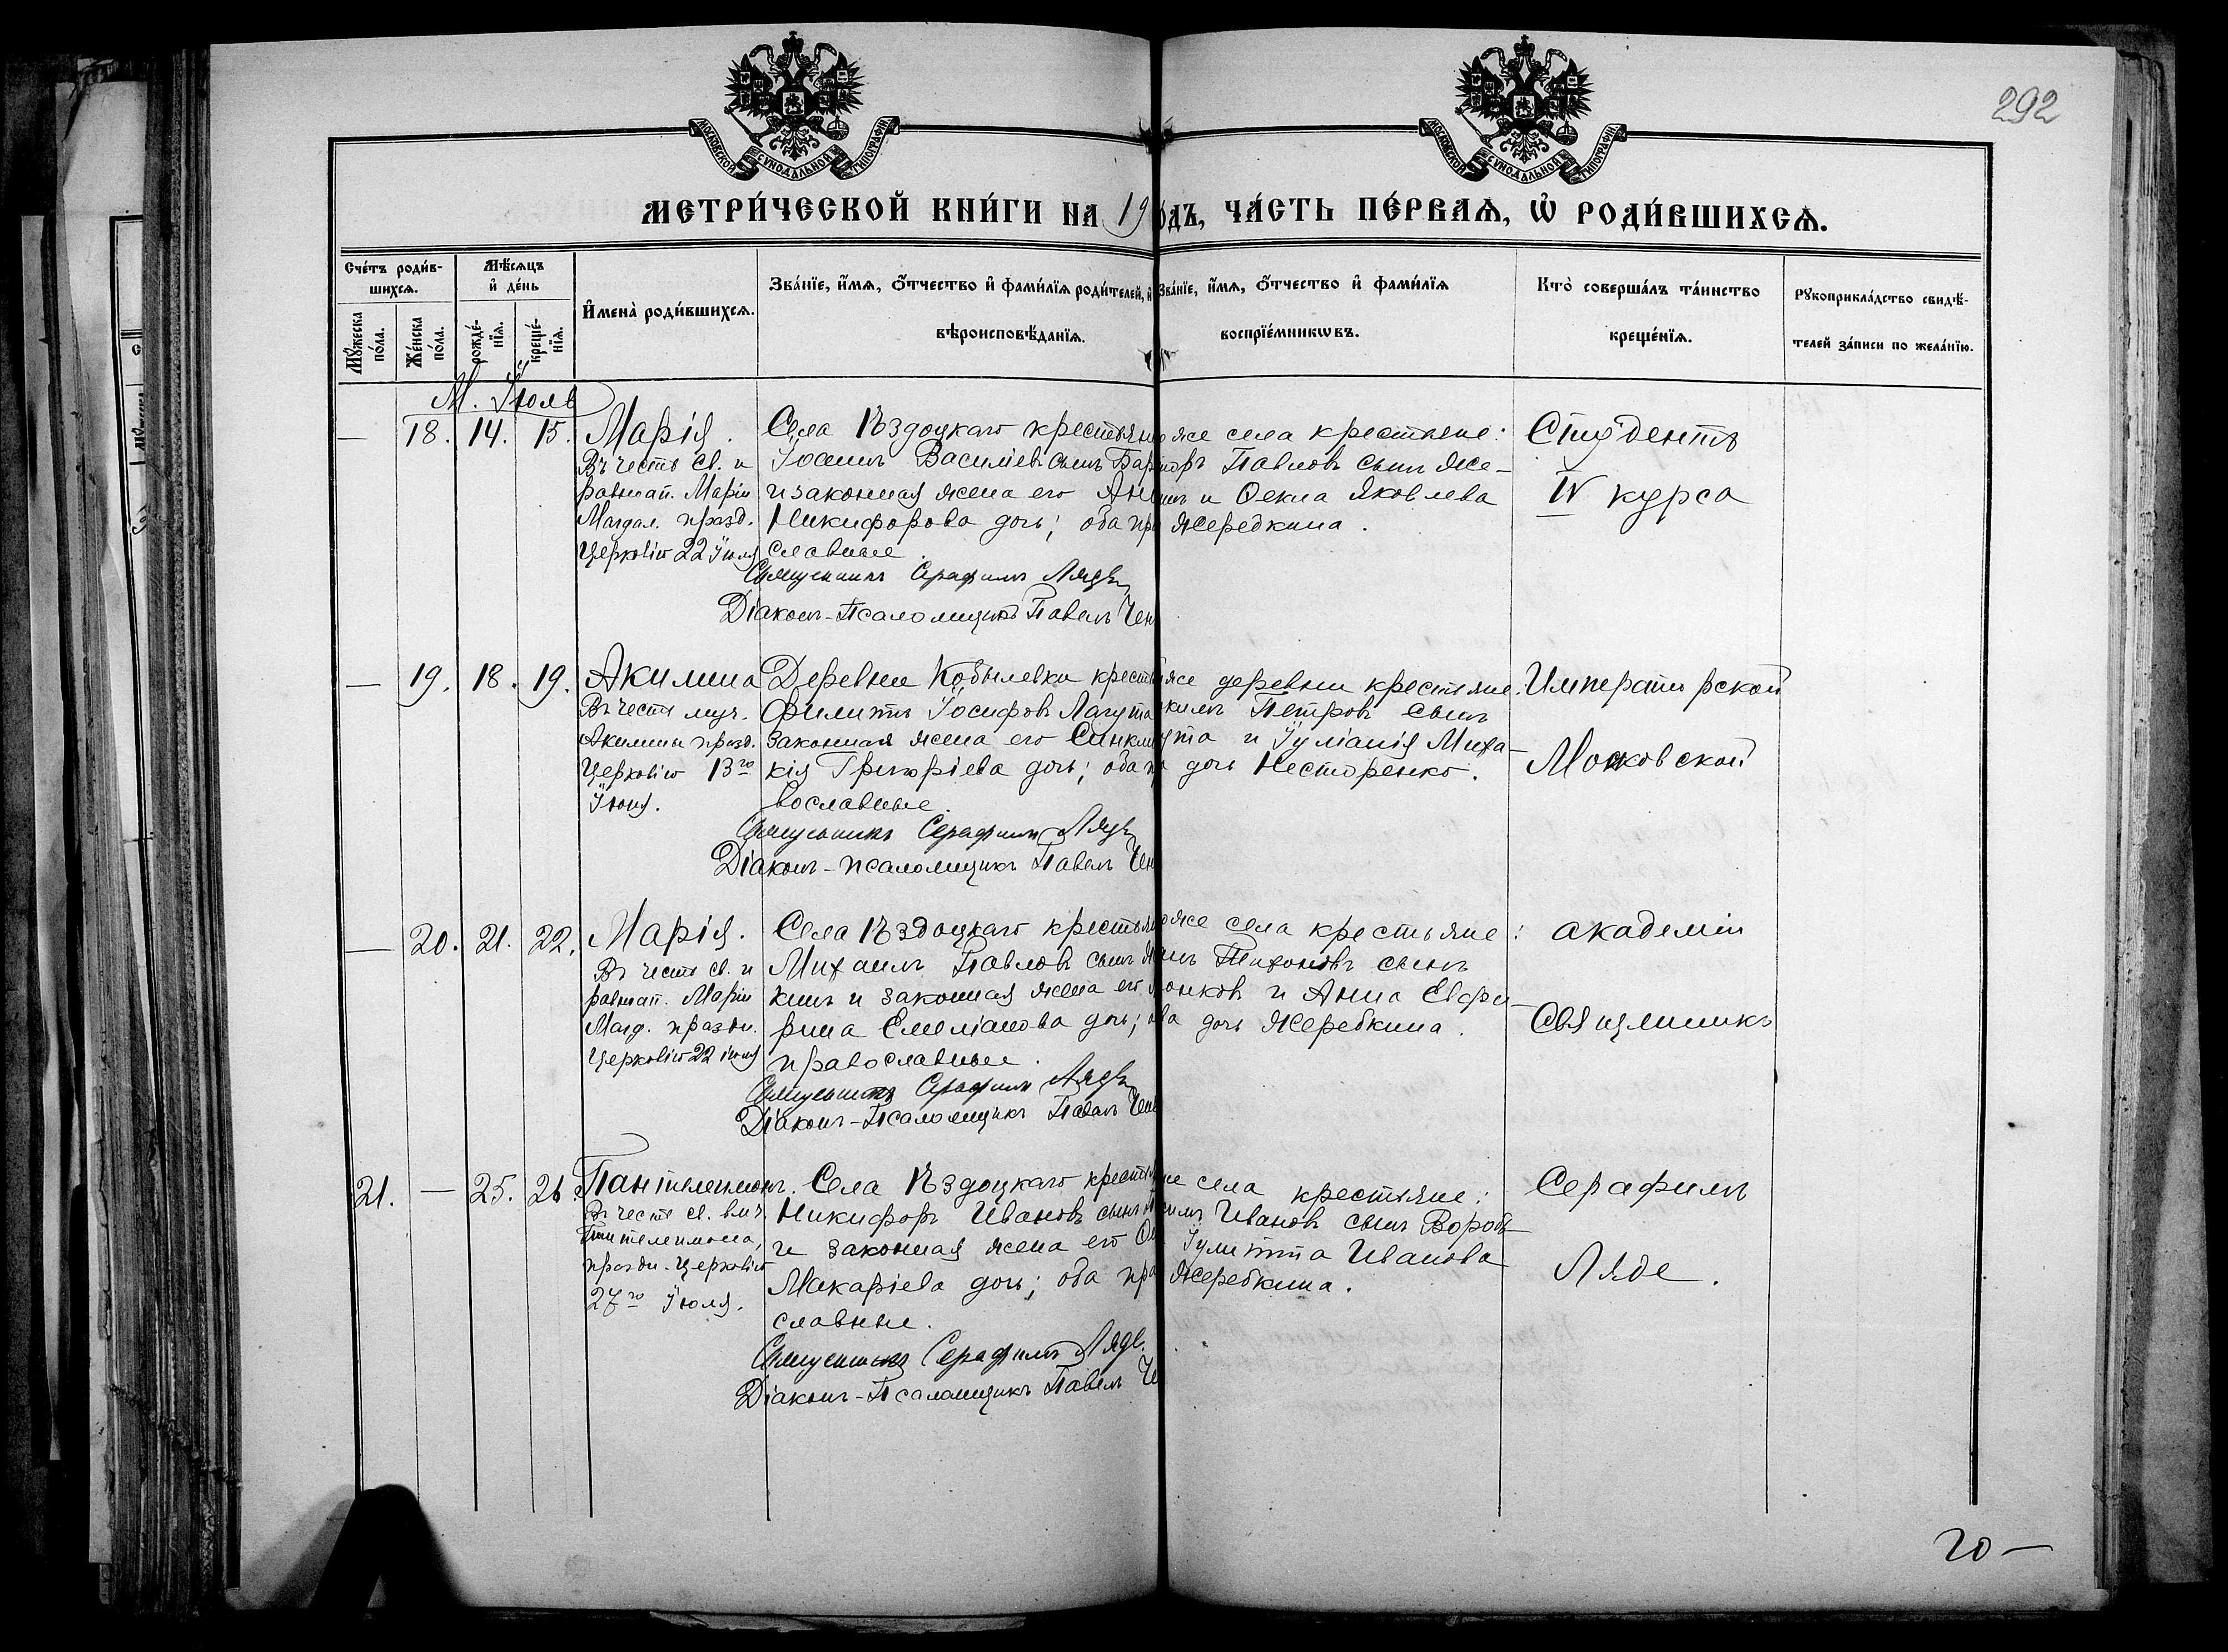 292
МОСКОВСКОЙ СѴНОДАЛЬНОЙ ТИПОГРАФІИ
МОСКОВСКОЙ СѴНОДАЛЬНОЙ ТИПОГРАФІИ
МЕТРИ́ЧЕСКОЙ КНИ́ГИ НА 19
ѻдъ, ЧА́СТЬ ПЕ́РВАѦ, Ѡ҆ РОДИ́ВШИХСѦ.
Сче́тъ роди́в-
шихсѧ.
Мѣ́сѧцъ
и҆ де́нь
Мꙋ́жеска по́ла.
Же́нска по́ла.
рожде́-нїѧ.
креще́-нїѧ.
И҆мена̀ роди́вшихсѧ.
Зва́нїе, и҆́мѧ, ѻ҆́тчество и҆ фами́лїѧ роди́телей, и҆
вѣроисповѣ́данїѧ.
Зва́нїе, и҆́мѧ, ѻ҆́тчество и҆ фами́лїѧ
воспрїе́мникѡвъ.
Кто̀ соверша́лъ та́инство
креще́нїѧ.
Рꙋкоприкла́дство свидѣ́-
телей за́писи по жела́нїю.
М. Іюль
— 18. 14. 15.
Марія.
Въ честь св. и
равноап. Маріи
Магдал. празд.
Церковію 22 Іюля
Села Ѣздоцкаго крестьян
Іоаннъ Васильевъ сынъ Бар
и законная жена его Ан
Никифорова дочь; оба пра
славные.
Священникъ Серафимъ Лядэ
Діаконъ-Псаломщикъ Павелъ Чен
же села крестьяне:
Павловъ сынъ Же-
и Ѳекла Яковлева
Жеребкина.
Студентъ
IV курса
— 19. 18. 19.
Акилина
Въ честь муч.
Акилины празд.
Церковію 13го
Іюня.
Деревни Кобылевки кресть
Филиппъ Іосифовъ Лагута
законная жена его Синкли
кія Григоріева дочь; оба п
вославные.
Священникъ Серафимъ Лядэ
Діаконъ-псаломщикъ Павелъ Чен
же деревни крестьяне.
кимъ Петровъ сынъ
ута и Іуліанія Миха-
дочь Нестеренко.
Императорской
Московской
— 20. 21. 22.
Марія.
Въ честь св. и
равноап. Маріи
Магд. праздн.
Церковію 22 іюля
Села Ѣздоцкаго крестьян
Михаилъ Павловъ сынъ Же
кинъ и законная жена его
рина Емеліанова дочь; о
православные.
Священникъ Серафимъ Лядэ
Діаконъ-Псаломщикъ Павелъ Чен
же села крестьяне:
Тихоновъ сынъ
и Анна Евфи-
ва дочь Жеребкина.
академіи
Священникъ
21. — 25. 26.
Пантелеимонъ.
Въ честь св. вмч.
Пантелеимона,
праздн. Церковію
27го Іюля.
Села Ѣздоцкаго крестья
Никифоръ Ивановъ сынъ
и законная жена его
Макаріева дочь; оба пра
славные.
Священникъ Серафимъ Лядэ.
Діаконъ-Псаломщикъ Павелъ Че
же села крестьяне:
Ивановъ сынъ Воробь-
Іулитта Иванова
Жеребкина.
Серафимъ
Ляде.
20 —